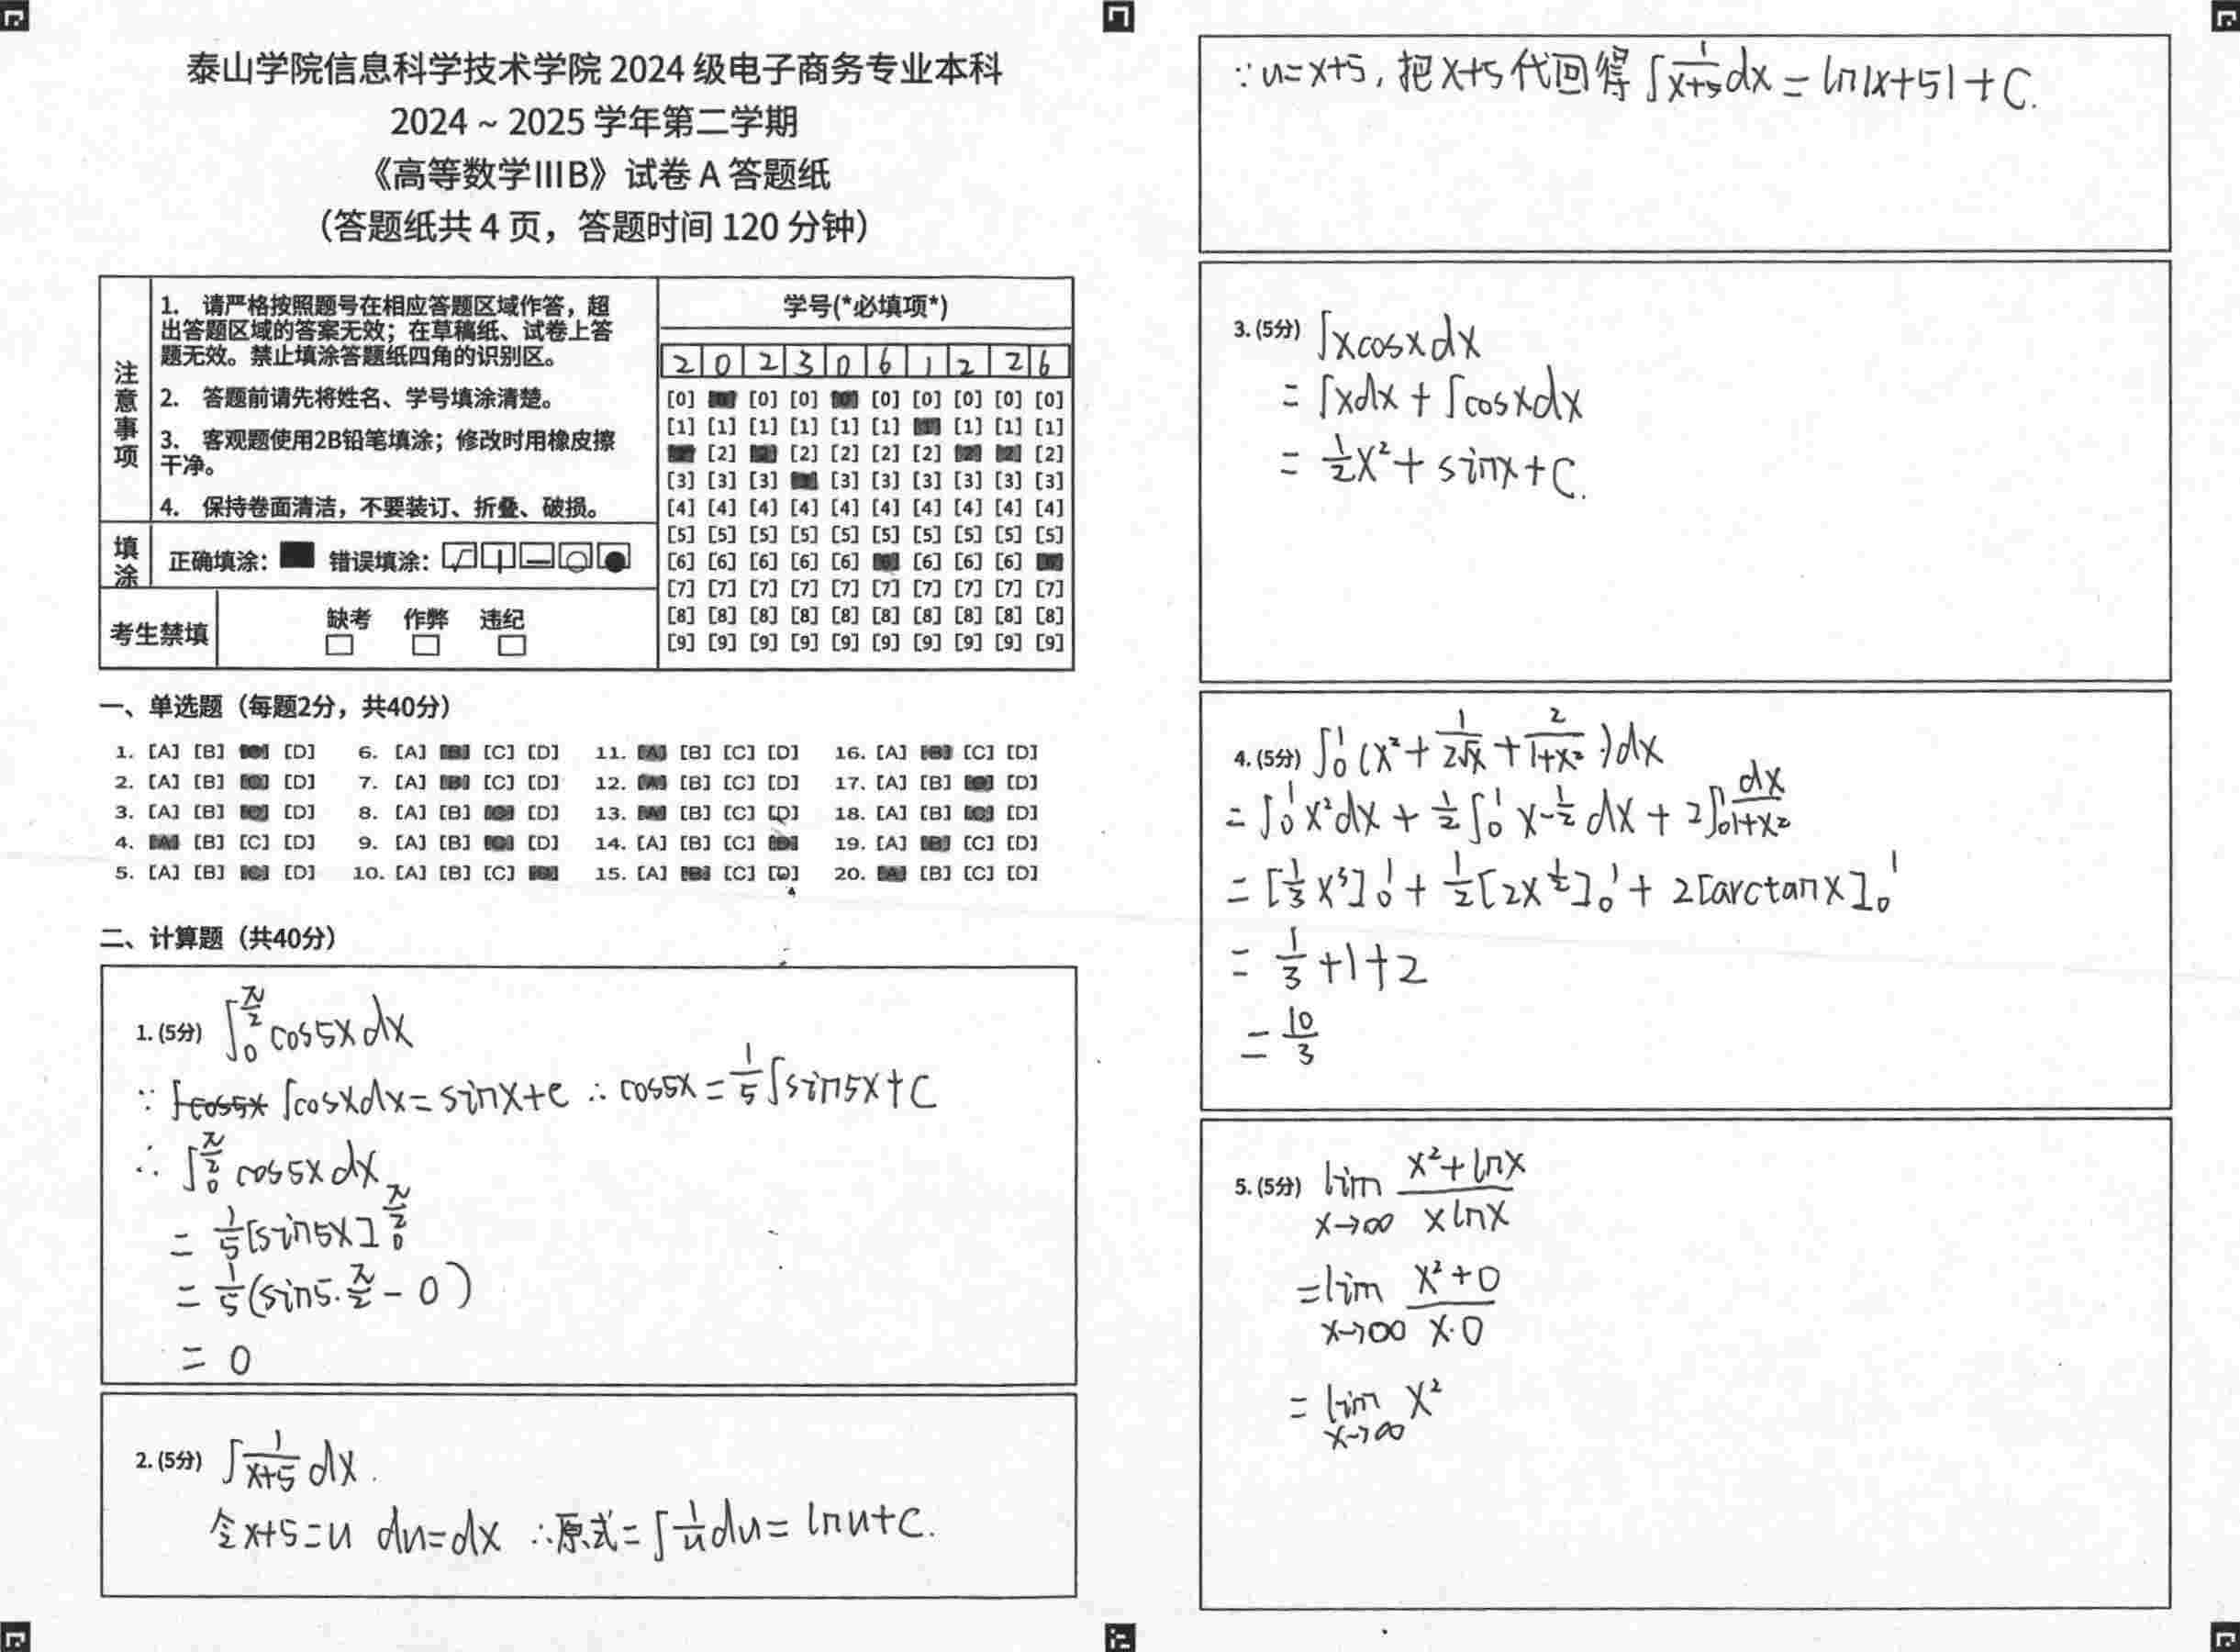 泰山学院信息科学技术学院 2024 级电子商务专业本科
2024 ~ 2025 学年第二学期
《高等数学IIIB》试卷 A 答题纸
（答题纸共 4 页，答题时间 120 分钟）
注意事项
1. 请严格按照题号在相应答题区域作答，超
出答题区域的答案无效；在草稿纸、试卷上答
题无效。禁止填涂答题纸四角的识别区。
2. 答题前请先将姓名、学号填涂清楚。
3. 客观题使用2B铅笔填涂；修改时用橡皮擦
干净。
4. 保持卷面清洁，不要装订、折叠、破损。
填涂
正确填涂： 错误填涂：
考生禁填
缺考 作弊 违纪
学号(*必填项*)
2 0 2 3 0 6 1 2 2 6
[0] [0] [0] [0] [0] [0] [0] [0] [0] [0]
[1] [1] [1] [1] [1] [1] [1] [1] [1] [1]
[2] [2] [2] [2] [2] [2] [2] [2] [2] [2]
[3] [3] [3] [3] [3] [3] [3] [3] [3] [3]
[4] [4] [4] [4] [4] [4] [4] [4] [4] [4]
[5] [5] [5] [5] [5] [5] [5] [5] [5] [5]
[6] [6] [6] [6] [6] [6] [6] [6] [6] [6]
[7] [7] [7] [7] [7] [7] [7] [7] [7] [7]
[8] [8] [8] [8] [8] [8] [8] [8] [8] [8]
[9] [9] [9] [9] [9] [9] [9] [9] [9] [9]
一、单选题（每题2分，共40分）
1. [A] [B] [C] [D] 6. [A] [B] [C] [D] 11. [A] [B] [C] [D] 16. [A] [B] [C] [D]
2. [A] [B] [C] [D] 7. [A] [B] [C] [D] 12. [A] [B] [C] [D] 17. [A] [B] [C] [D]
3. [A] [B] [C] [D] 8. [A] [B] [C] [D] 13. [A] [B] [C] [D] 18. [A] [B] [C] [D]
4. [A] [B] [C] [D] 9. [A] [B] [C] [D] 14. [A] [B] [C] [D] 19. [A] [B] [C] [D]
5. [A] [B] [C] [D] 10. [A] [B] [C] [D] 15. [A] [B] [C] [D] 20. [A] [B] [C] [D]
二、计算题（共40分）
1. (5分) ∫₀^(π/2) cos5x dx
∵ ∫cos5x ∫cosxdx = sinx+c ∴ cos5x = 1/5 ∫sin5x+C
∴ ∫₀^(π/2) cos5x dx
= 1/5 [sin5x]₀^(π/2)
= 1/5 (sin5·π/2 - 0)
= 0
2. (5分) ∫ 1/(x+5) dx.
令x+5=u du=dx ∴原式=∫ 1/u du= lnu+C.
∵u=x+5, 把x+5代回得 ∫ 1/(x+5) dx = ln|x+5|+C.
3. (5分) ∫xcosxdx
= ∫xdx + ∫cosxdx
= 1/2 x² + sinx+C.
4. (5分) ∫₀¹ (x² + 1/(2√x) + 2/(1+x²))dx
= ∫₀¹ x²dx + 1/2 ∫₀¹ x^(-1/2) dx + 2∫₀¹ dx/(1+x²)
= [1/3 x³]₀¹ + 1/2 [2x^(1/2)]₀¹ + 2[arctanx]₀¹
= 1/3 +1+2
= 10/3
5. (5分) lim x→∞ (x²+lnx)/(xlnx)
= lim x→∞ (x²+0)/(x·0)
= lim x→∞ x²